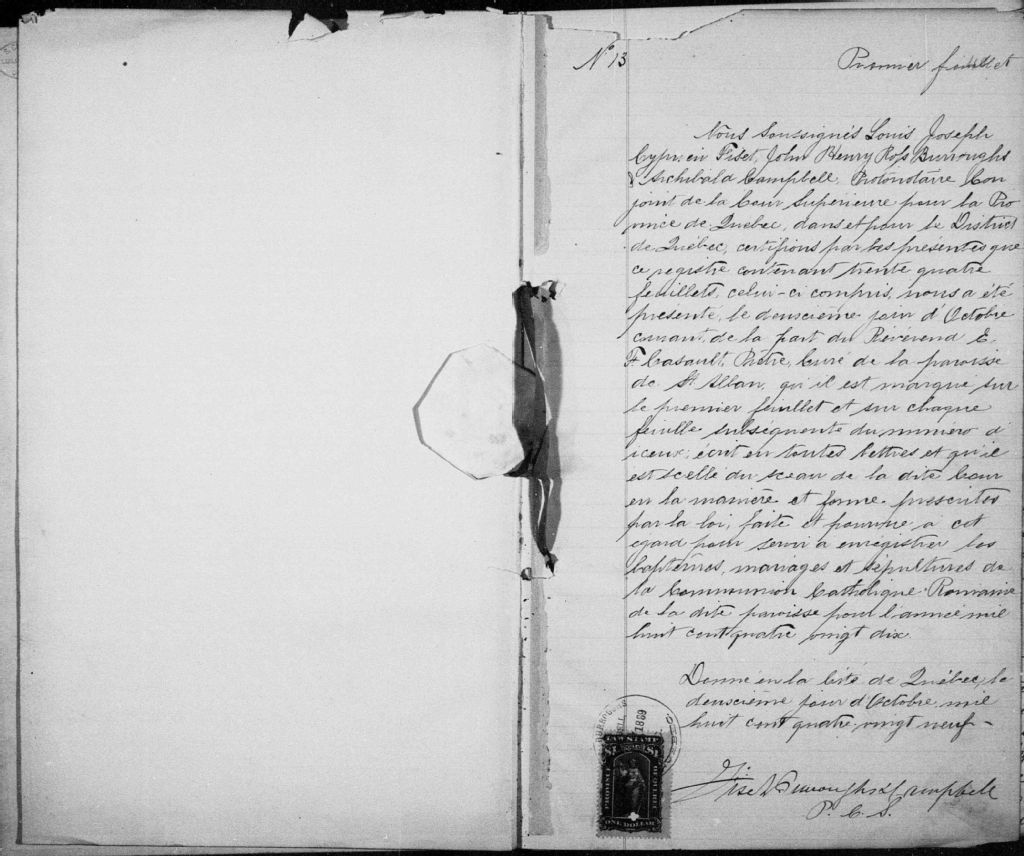 N° 13
Premier feuillet
Nous Soussignés Louis Joseph
Cyprien Fiset, John Henry Ross Burroughs
& Archibald Campbell, Protonotaire Con
joint de la Cour Supérieure pour la Pro
vince de Québec, dans et pour le District
de Québec, certifions par les présentes que
ce registre contenant trente quatre
feuillets, celui-ci compris, nous a été
présenté, le deuxième jour d'Octobre
courant, de la part du Révérend E.
F. Casault, Prêtre, Curé de la paroisse
de St Alban, qu'il est marqué sur
le premier feuillet et sur chaque
feuille subséquente du numéro d'
iceux, écrit en toutes lettres et qu'il
est scellé du sceau de la dite Cour
en la manière et forme prescrites
par la loi, faite et pourvue à cet
égard pour servir à enregistrer les
baptêmes, mariages et sépultures de
la Communion Catholique Romaine
de la dite paroisse pour l'année mil
huit cent quatre vingt dix
Donné en la Cité de Québec, le
deuxième jour d'Octobre mil
huit cent quatre-vingt neuf -
Fiset Burroughs & Campbell
P. C. S.
BURROUGHS
1889
LAW STAMP
$1 $1
PROVINCE QUEBEC
ONE DOLLAR